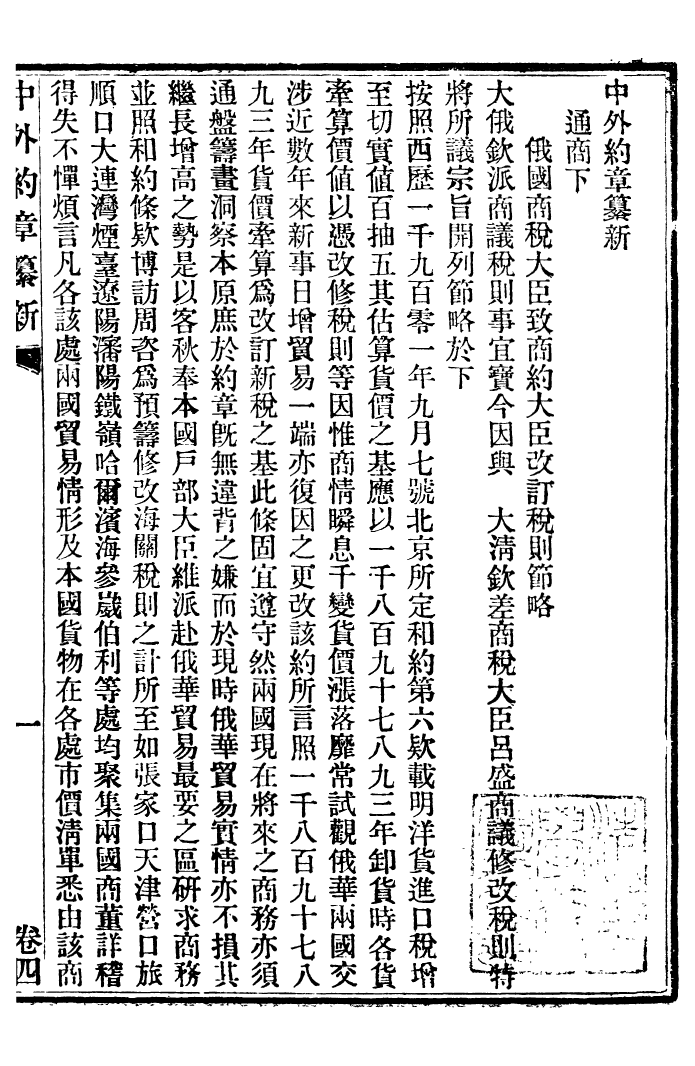 中外約章纂新
通商下
俄國商稅大臣致商約大臣改訂稅則節略
大俄欽派商議稅則事宜寶今因與　大清欽差商稅大臣呂盛商議修改稅則特
將所議宗旨開列節略於下
按照西歷一千九百零一年九月七號北京所定和約第六欵載明洋貨進口稅增
至切實值百抽五其估算貨價之基應以一千八百九十七八九三年卸貨時各貨
牽算價值以憑改修稅則等因惟商情瞬息千變貨價漲落靡常試觀俄華兩國交
涉近數年來新事日增貿易一端亦復因之更改該約所言照一千八百九十七八
九三年貨價牽算爲改訂新稅之基此條固宜遵守然兩國現在將來之商務亦須
通盤籌畫洞察本原庶於約章旣無違背之嫌而於現時俄華貿易實情亦不損其
繼長增高之勢是以客秋奉本國戶部大臣維派赴俄華貿易最要之區研求商務
並照和約條欵博訪周咨爲預籌修改海關稅則之計所至如張家口天津營口旅
順口大連灣煙臺遼陽瀋陽鐵嶺哈爾濱海參崴伯利等處均聚集兩國商董詳稽
得失不憚煩言凡各該處兩國貿易情形及本國貨物在各處市價清單悉由該商
中外約章纂新
一
卷四